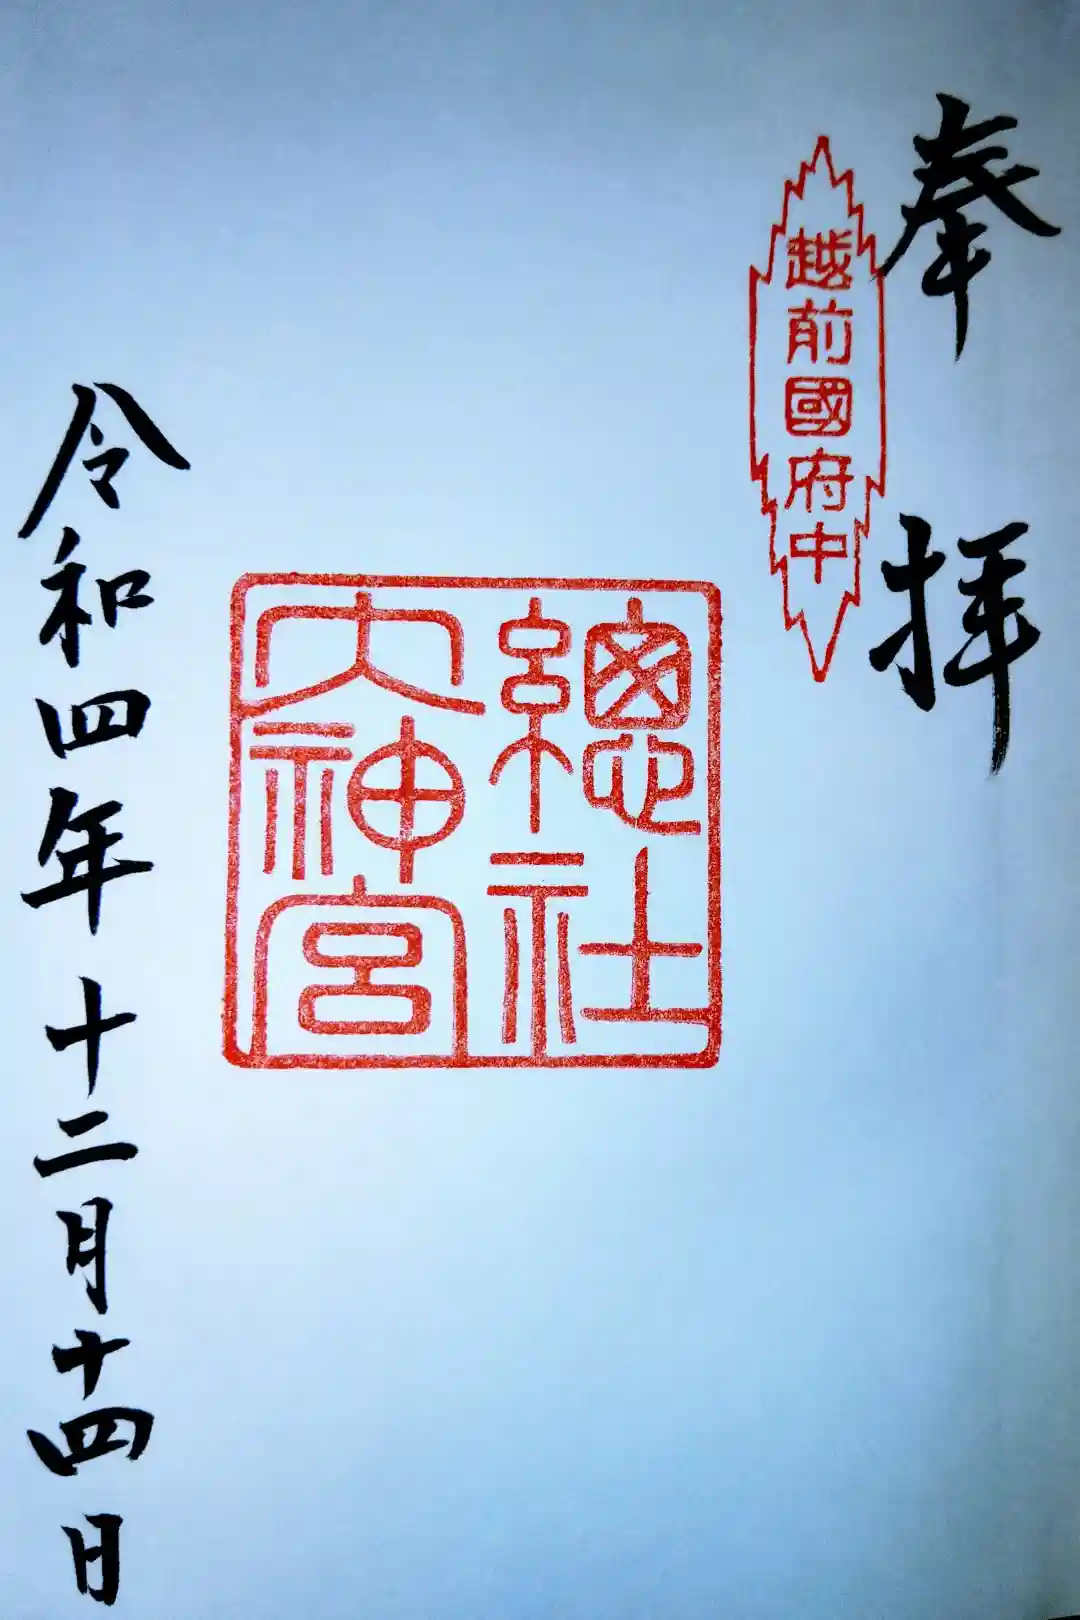 奉拝
越前國府中
總社
大神宮
令和四年十二月十四日